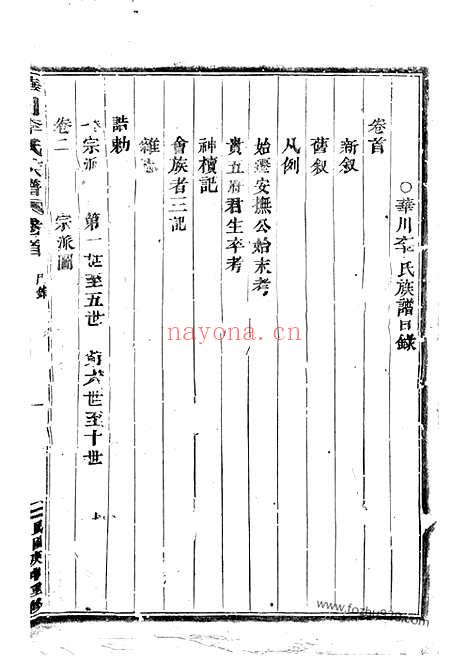 ○華川李氏族譜目錄
卷首
新叙
舊叙
凡例
始遷安撫公始末考
貴五府君生卒考
神櫝記
會族者三記
雜
誥勅
宗派 第一世至五世 第六世至十世
卷二 宗派圖
李氏 譜 卷首 目錄 一
重修
nayona.cn
www.fozhu920.com